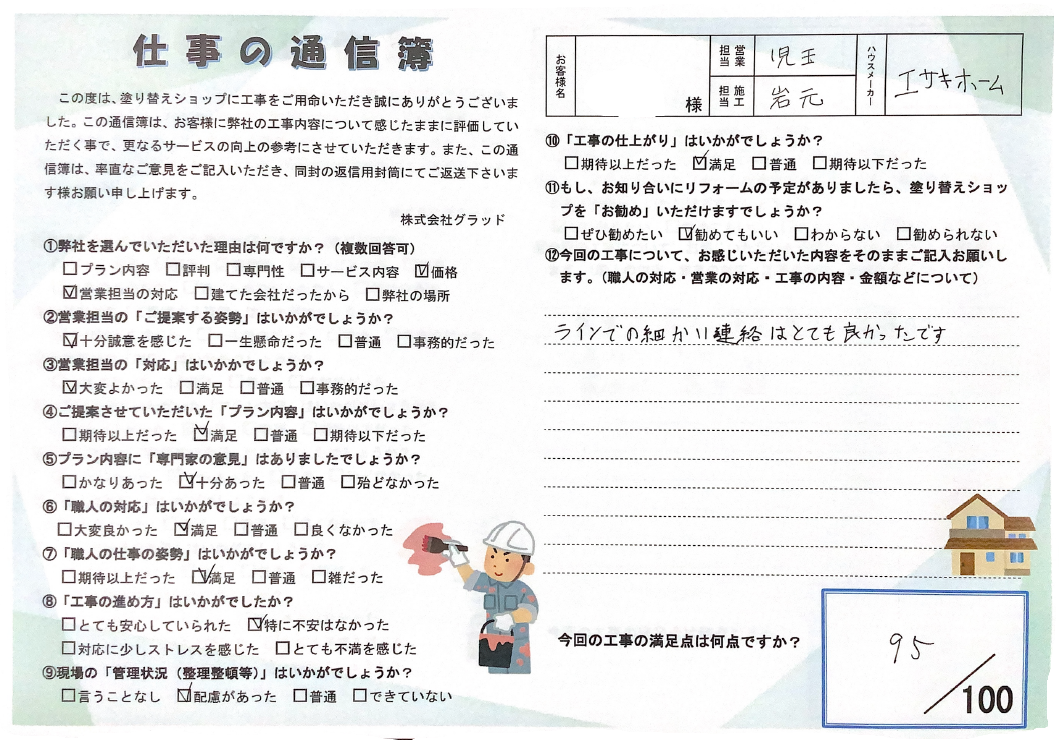 仕事の通信簿
この度は、塗り替えショップに工事をご用命いただき誠にありがとうございま
した。この通信簿は、お客様に弊社の工事内容について感じたままに評価してい
ただく事で、更なるサービスの向上の参考にさせていただきます。また、この通
信簿は、率直なご意見をご記入いただき、同封の返信用封筒にてご返送下さいま
す様お願い申し上げます。
株式会社グラッド
①弊社を選んでいただいた理由は何ですか？（複数回答可）
□プラン内容 □評判 □専門性 □サービス内容 ☑価格
☑営業担当の対応 □建てた会社だったから □弊社の場所
②営業担当の「ご提案する姿勢」はいかがでしょうか？
☑十分誠意を感じた □一生懸命だった □普通 □事務的だった
③営業担当の「対応」はいかかでしょうか？
☑大変よかった □満足 □普通 □事務的だった
④ご提案させていただいた「プラン内容」はいかがでしょうか？
□期待以上だった ☑満足 □普通 □期待以下だった
⑤プラン内容に「専門家の意見」はありましたでしょうか？
□かなりあった ☑十分あった □普通 □殆どなかった
⑥「職人の対応」はいかがでしょうか？
□大変良かった ☑満足 □普通 □良くなかった
⑦「職人の仕事の姿勢」はいかがでしょうか？
□期待以上だった ☑満足 □普通 □雑だった
⑧「工事の進め方」はいかがでしたか？
□とても安心していられた ☑特に不安はなかった
□対応に少しストレスを感じた □とても不満を感じた
⑨現場の「管理状況（整理整頓等）」はいかがでしょうか？
□言うことなし ☑配慮があった □普通 □できていない
お客様名 様 営業担当 児玉 施工担当 岩元 ハウスメーカー エサキホーム
⑩「工事の仕上がり」はいかがでしょうか？
□期待以上だった ☑満足 □普通 □期待以下だった
⑪もし、お知り合いにリフォームの予定がありましたら、塗り替えショッ
プを「お勧め」いただけますでしょうか？
□ぜひ勧めたい ☑勧めてもいい □わからない □勧められない
⑫今回の工事について、お感じいただいた内容をそのままご記入お願いし
ます。（職人の対応・営業の対応・工事の内容・金額などについて）
ラインでの細かい連絡はとても良かったです
今回の工事の満足点は何点ですか？
95
/100